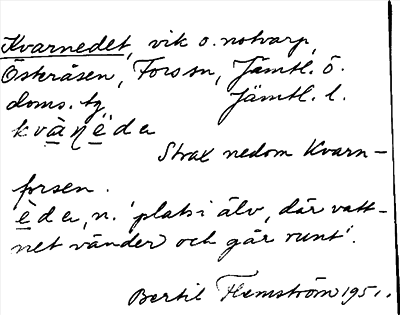 Kvarnedet, vik o. notvarp,
Österåsen, Fors sn, Jämtl. ö.
doms. tg Jämtl. l.
kvà̱ṇë̱da
Strax nedom Kvarn-
forsen.
è̱da, n. 'plats i älv, där vatt-
net vänder och går runt'.
Bertil Flemström 1951.